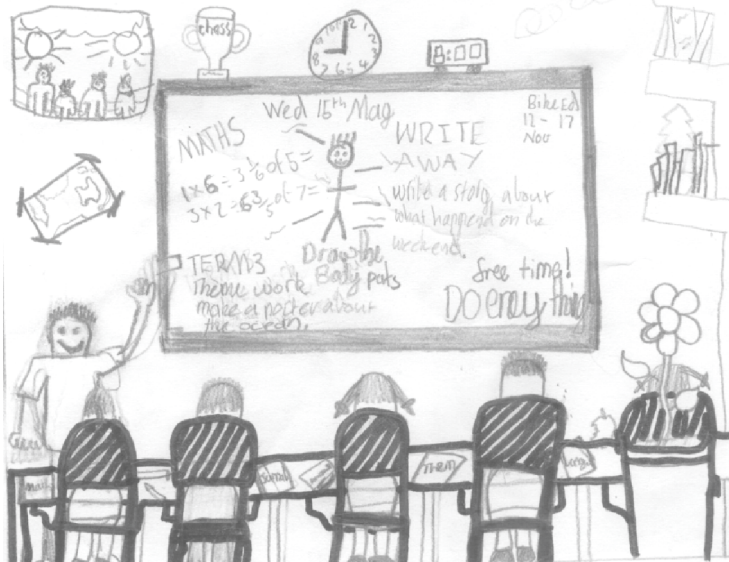 chess
8:00
Wed 15th May
Bike Ed
12 - 17
Nov
MATHS
1 x 6 ÷ 3 1/6 of 5 =
3 x 2 ÷ 6 3/5 of 7 =
WRITE
AWAY
write a story about
what happend on the
weekend.
Draw the
Body pats
TERM 3
Theme work
make a poster about
the ocean.
free time!
DO eneything